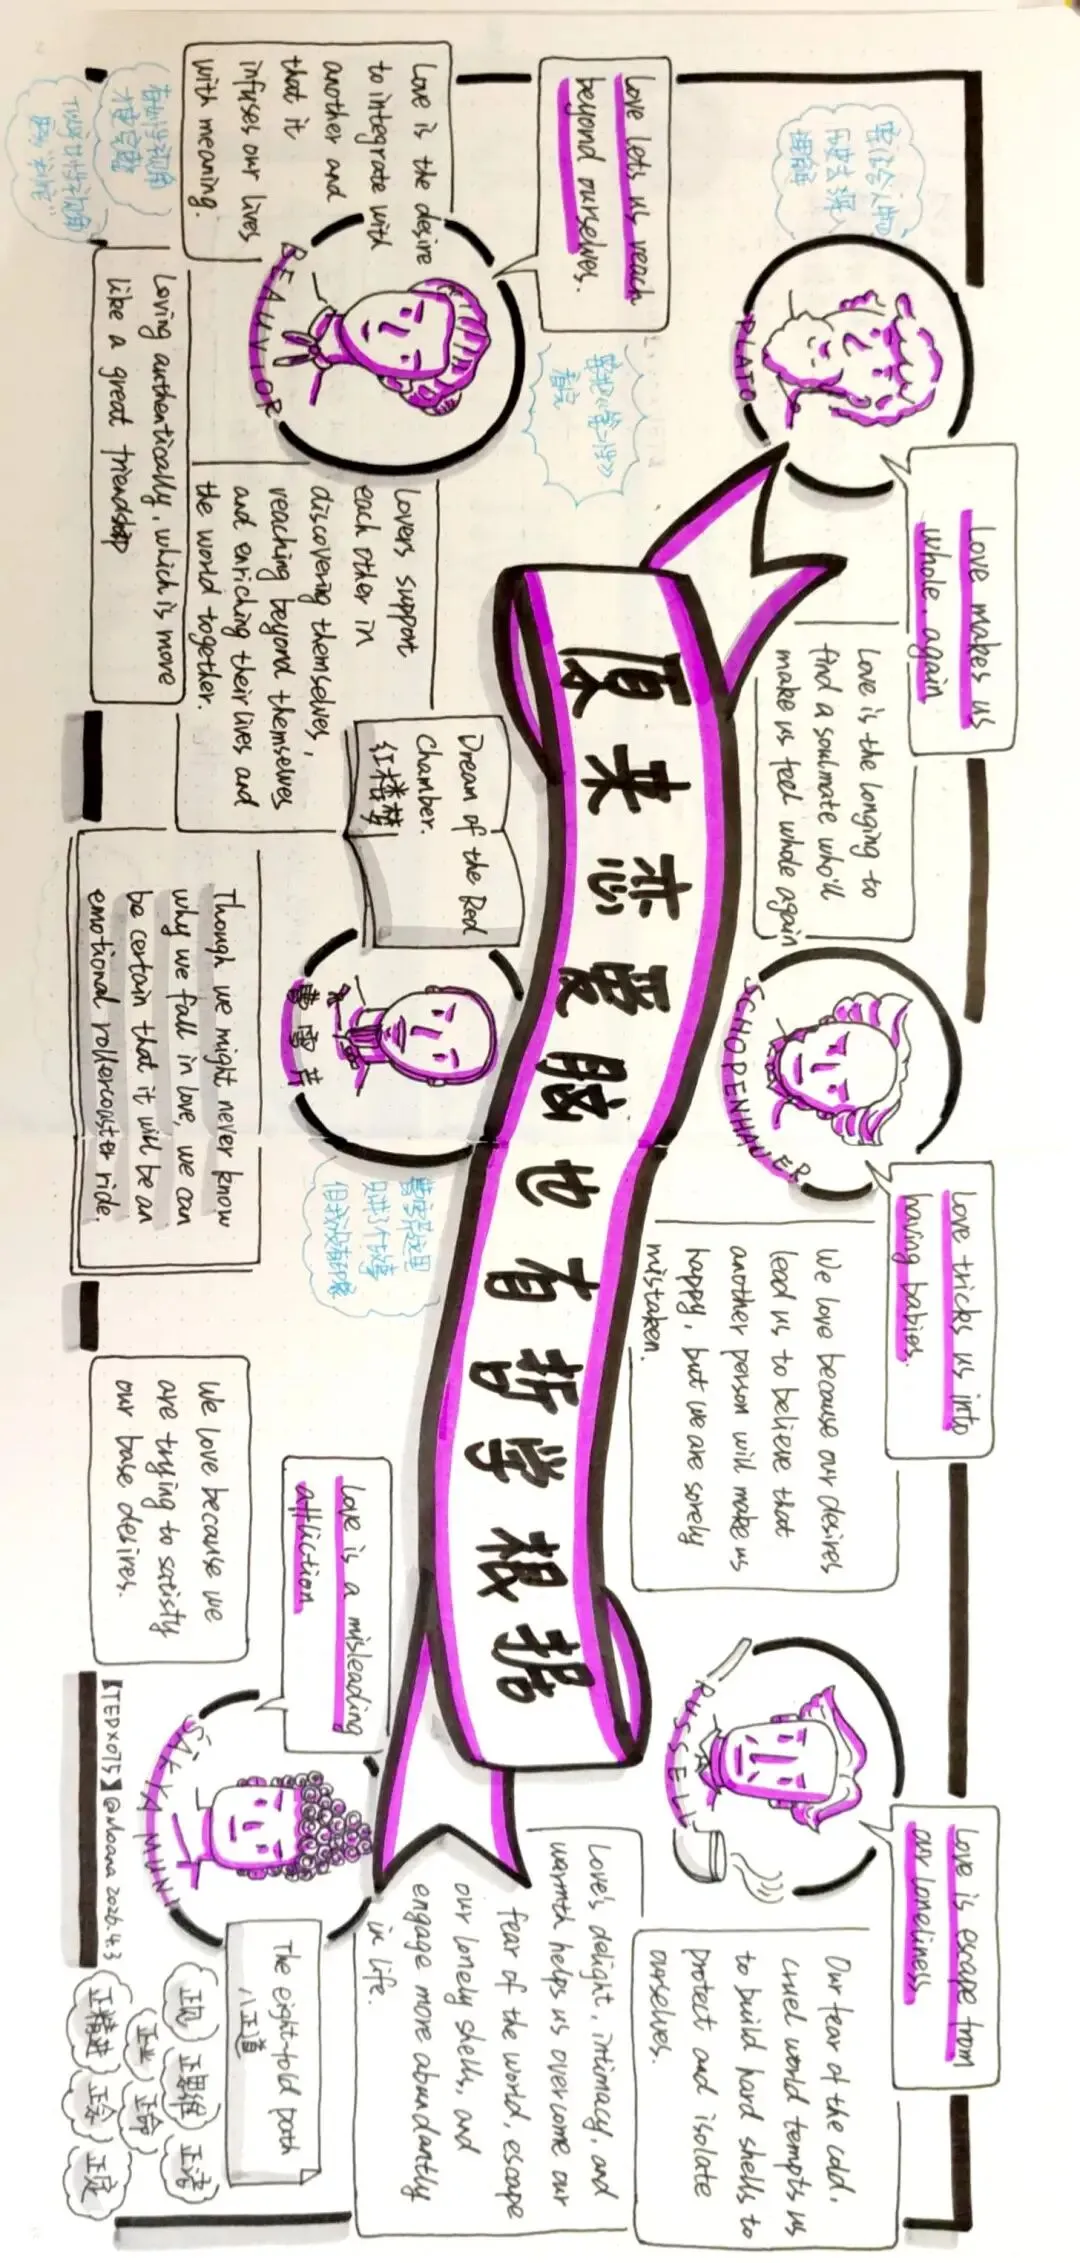 PLATO
Love makes us
whole, again
Love is the longing to
find a soulmate who'll
make us feel whole again
SCHOPENHAUER
Love tricks us into
having babies.
We love because our desires
lead us to believe that
another person will make us
happy, but we are sorely
mistaken.
RUSSELL
Love is escape from
our loneliness
Our fear of the cold,
cruel world tempts us
to build hard shells to
protect and isolate
ourselves.
Love's delight, intimacy, and
warmth helps us overcome our
fear of the world, escape
our lonely shells, and
engage more abundantly
in life.
原来恋爱脑也有哲学根据
Love lets us reach
beyond ourselves.
要把《第二性》
看完
BEAUVIOR
Love is the desire
to integrate with
another and
that it
infuses our lives
with meaning.
Lovers support
each other in
discovering themselves,
reaching beyond themselves
and enriching their lives and
the world together.
Loving authentically, which is more
like a great friendship
有女性视角
才更完整
Dream of the Red
Chamber.
红楼梦
曹雪芹
曹雪芹这里
只讲了个故事
但我没有印象
Though we might never know
why we fall in love, we can
be certain that it will be an
emotional rollercoaster ride.
Love is a misleading
affliction
We love because we
are trying to satisfy
our base desires.
SAKIYA MUNI
The eight-fold path
八正道
正见 正思维 正语
正业 正命
正精进 正念 正定
【TEDX075】@Moana 2026.4.3